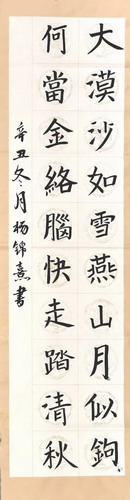 大漠沙如雪燕山月似鉤
何當金絡腦快走踏清秋
辛丑冬月杨锦熹書